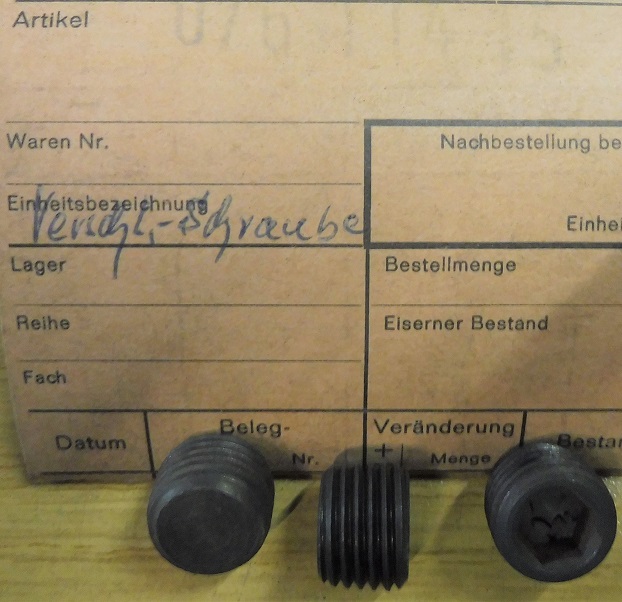 Artikel
Waren Nr.
Nachbestellung be
Einheitsbezeichnung
Verschl,-Schraube
Einhei
Lager
Bestellmenge
Reihe
Eiserner Bestand
Fach
Datum
Beleg-
Nr.
Veränderung
+ Menge
Bestan